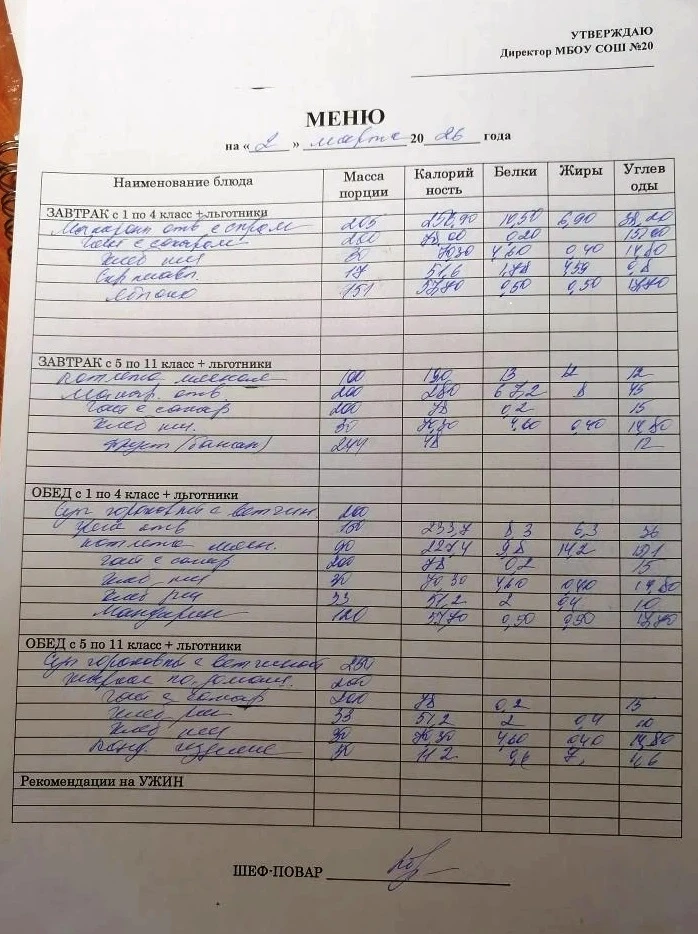 УТВЕРЖДАЮ
Директор МБОУ СОШ №20
МЕНЮ
на « 2 » марта 20 26 года
Наименование блюда Масса порции Калорий ность Белки Жиры Углев оды
ЗАВТРАК с 1 по 4 класс + льготники
Макароны отв с сыром 205 10,30 6,90 38,20
Чай с сахаром 200 78,00 0,20 15,00
Хлеб пш 30 7030 4,60 0,40 14,80
17 51,6
Яблоко 151 0,50 0,50
ЗАВТРАК с 5 по 11 класс + льготники
Котлета мясная 100 190 13 12 12
Макар. отв. 200 280 8 45
Чай с сахар 200 78 0,2 15
Хлеб пш. 30 70,30 4,60 0,40 14,80
Фрукт (банан) 244 48 12
ОБЕД с 1 по 4 класс + льготники
Суп гороховый с ветчин. 200
отв 150 233,7 8,3 6,3 36
Котлета мясн. 90 227,4 9,8 14,2
Чай с сахар 200 78 0,2 15
Хлеб пш 30 7030 4,60 0,40 14,80
Хлеб рж 33 51,2 2 0,4 10
Мандарин 120 0,50 0,50
ОБЕД с 5 по 11 класс + льготники
Суп гороховый с ветчиной 250
Жаркое по домаш. 200
Чай с сахар 200 78 0,2 15
Хлеб рж 33 51,2 2 0,4 10
Хлеб пш 30 7030 4,60 0,40 14,80
Конд изделие 30
Рекомендации на УЖИН
ШЕФ-ПОВАР